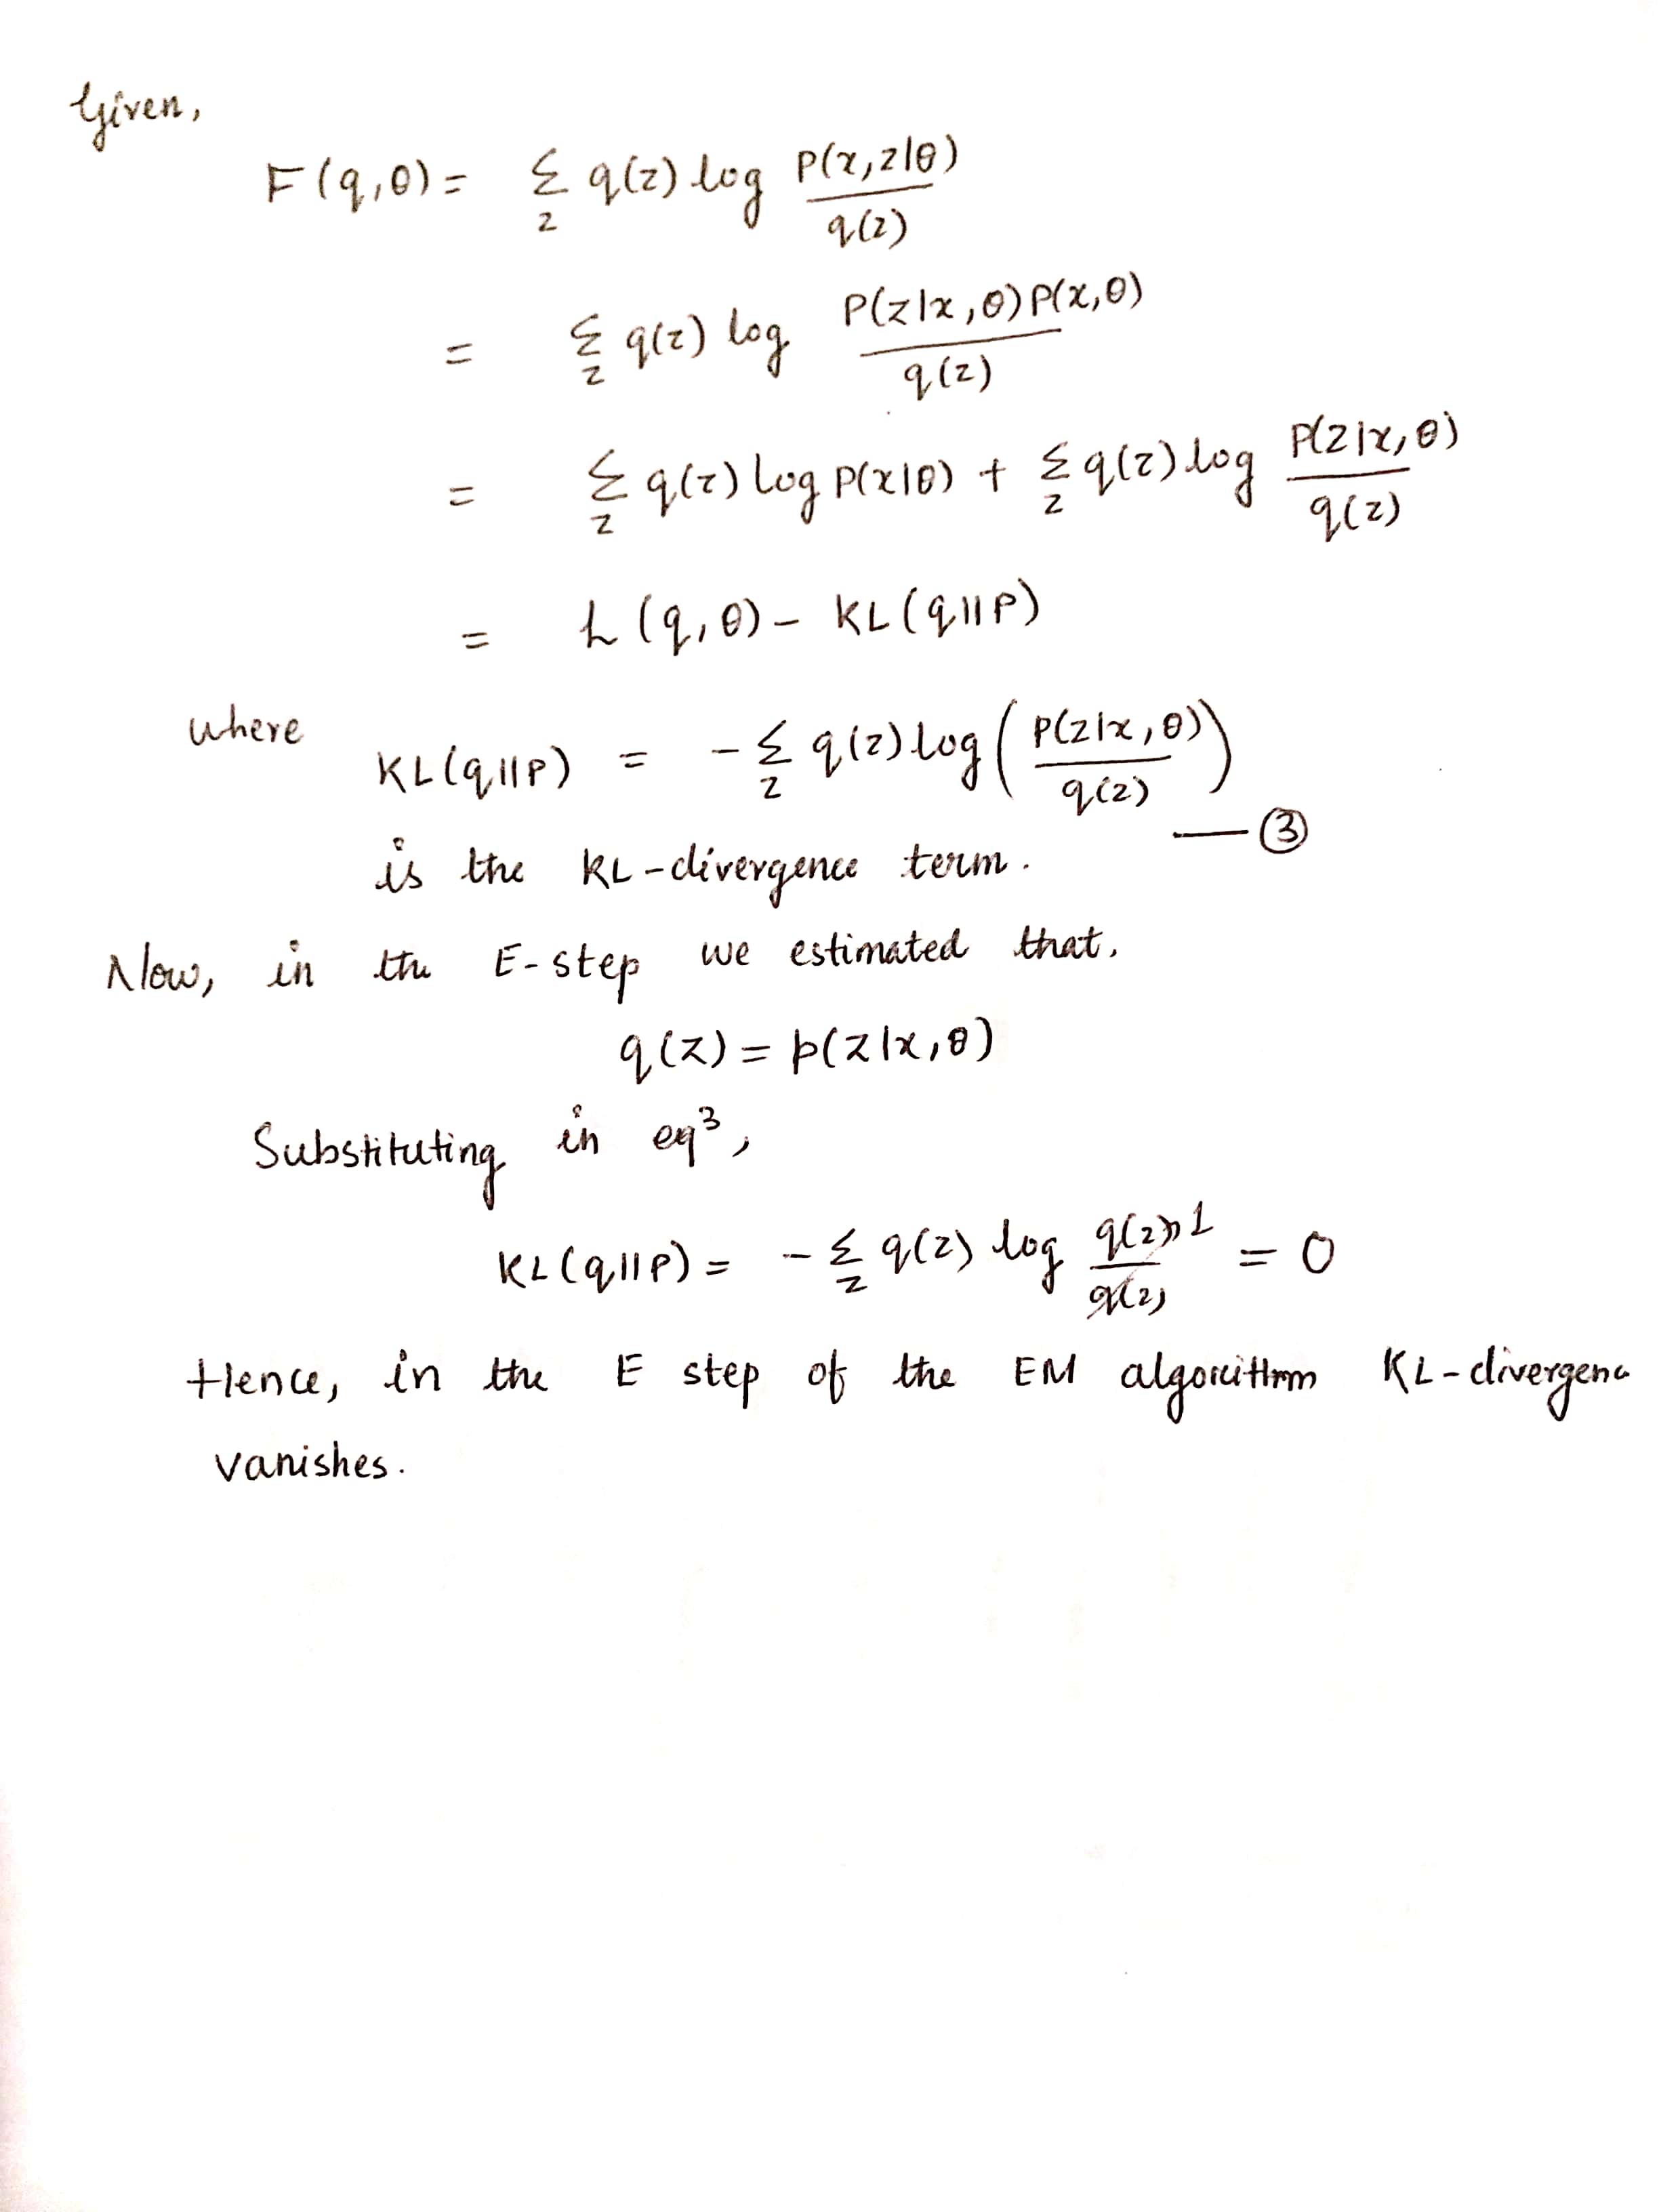 Given,
F(q,θ) = Σ_z q(z) log P(x,z|θ) / q(z)
= Σ_z q(z) log P(z|x,θ) P(x,θ) / q(z)
= Σ_z q(z) log P(x|θ) + Σ_z q(z) log P(z|x,θ) / q(z)
= L(q,θ) - KL(q||P)
where
KL(q||P) = -Σ_z q(z) log ( P(z|x,θ) / q(z) )
— ③
is the KL-divergence term.
Now, in the E-step we estimated that,
q(z) = p(z|x,θ)
Substituting in eq³,
KL(q||P) = -Σ_z q(z) log q(z) / q(z) 1 = 0
Hence, in the E step of the EM algorithm KL-divergenc
vanishes.